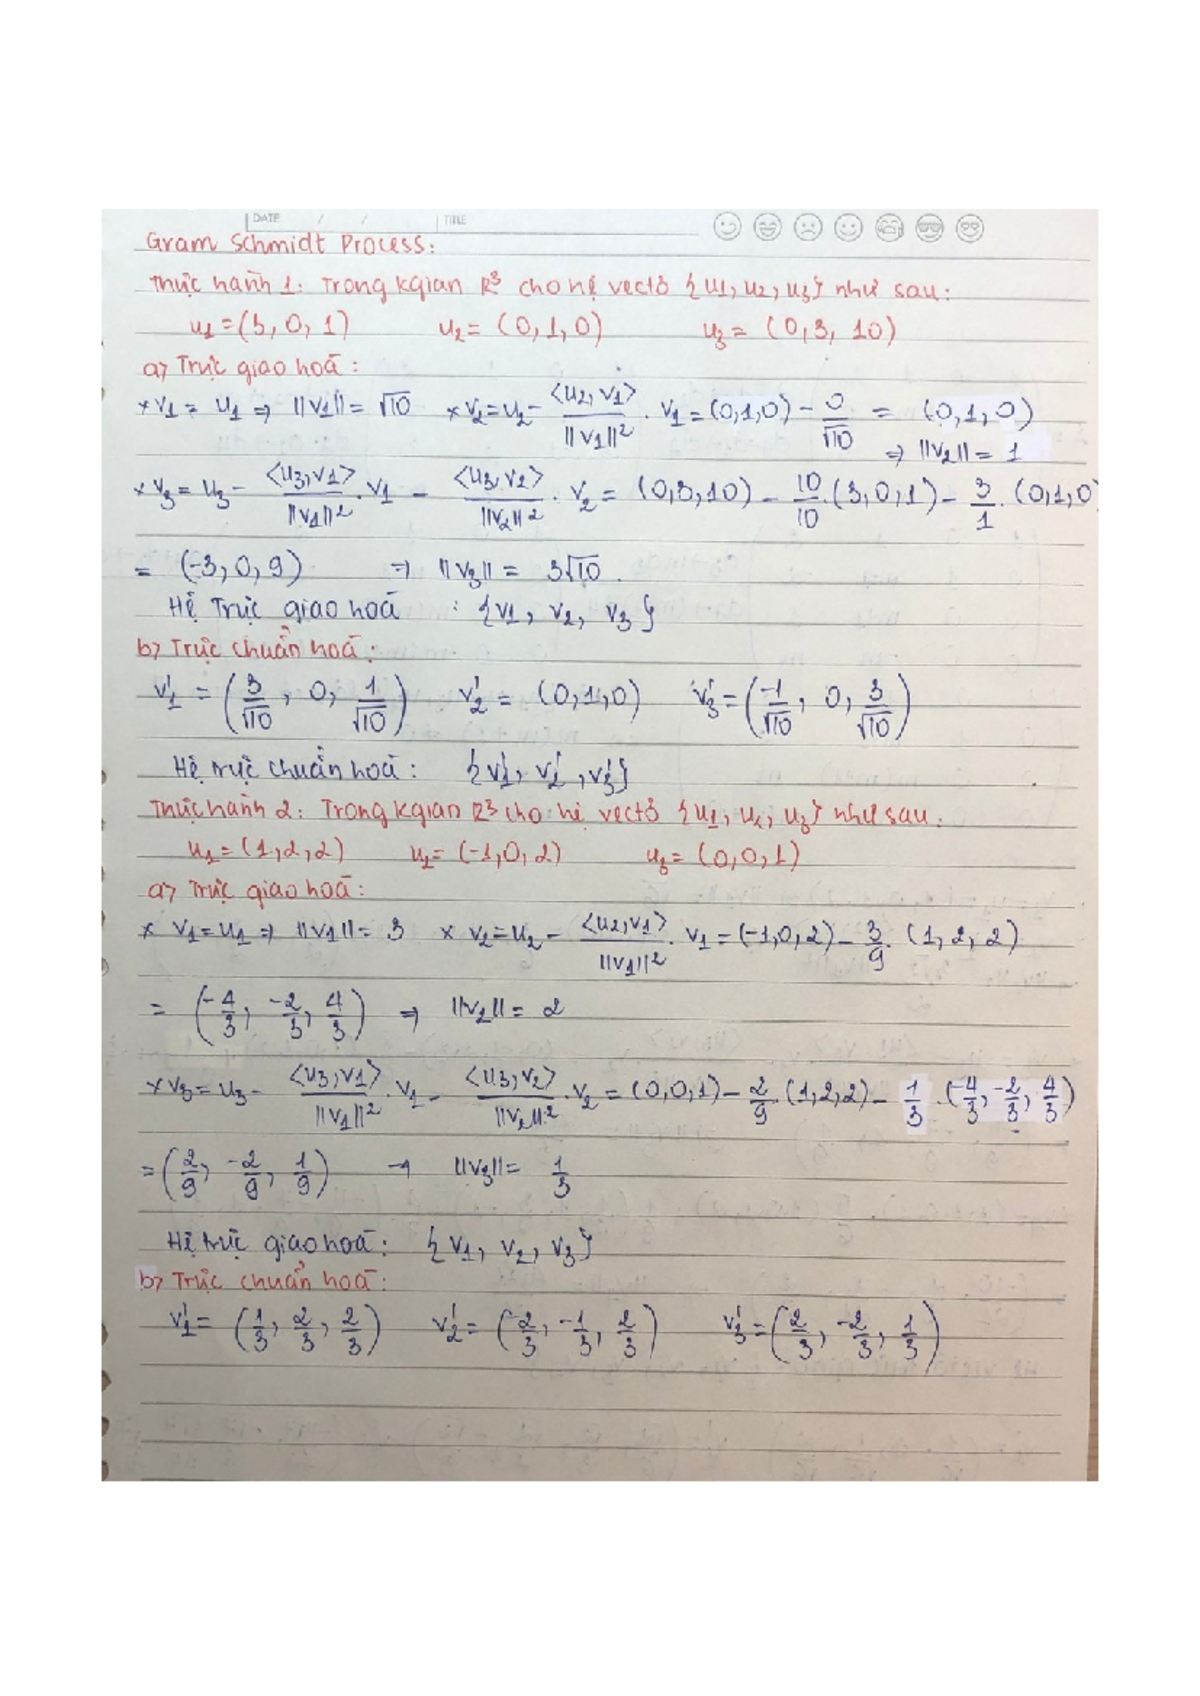 DATE / / TITLE
Gram Schmidt Process:
Thực hành 1: Trong kgian R³ cho hệ vectơ {u1, u2, u3} như sau:
u1 = (3, 0, 1) u2 = (0, 1, 0) u3 = (0, 3, 10)
a) Trực giao hoá:
* v1 = u1 ⇒ ||v1|| = √10 * v2 = u2 - <u2, v1>/||v1||² . v1 = (0,1,0) - 0/√10 = (0,1,0)
⇒ ||v2|| = 1
* v3 = u3 - <u3,v1>/||v1||² . v1 - <u3,v2>/||v2||² . v2 = (0,3,10) - 10/10 . (3,0,1) - 3/1 . (0,1,0)
= (-3, 0, 9) ⇒ ||v3|| = 3√10.
Hệ trực giao hoá : {v1, v2, v3}
b) Trực chuẩn hoá:
v1' = (3/√10, 0, 1/√10) v2' = (0,1,0) v3' = (-1/√10, 0, 3/√10)
Hệ trực chuẩn hoá: {v1', v2', v3'}
Thực hành 2: Trong kgian R³ cho hệ vectơ {u1, u2, u3} như sau:
u1 = (1, 2, 2) u2 = (-1, 0, 2) u3 = (0, 0, 1)
a) Trực giao hoá:
* v1 = u1 ⇒ ||v1|| = 3 * v2 = u2 - <u2,v1>/||v1||² . v1 = (-1,0,2) - 3/9 . (1, 2, 2)
= (-4/3, -2/3, 4/3) ⇒ ||v2|| = 2
* v3 = u3 - <u3,v1>/||v1||² . v1 - <u3,v2>/||v2||² . v2 = (0,0,1) - 2/9 . (1,2,2) - 1/3 . (-4/3, -2/3, 4/3)
= (2/9, -2/9, 1/9) → ||v3|| = 1/3
Hệ trực giao hoá: {v1, v2, v3}
b) Trực chuẩn hoá:
v1' = (1/3, 2/3, 2/3) v2' = (-2/3, -1/3, 2/3) v3' = (2/3, -2/3, 1/3)